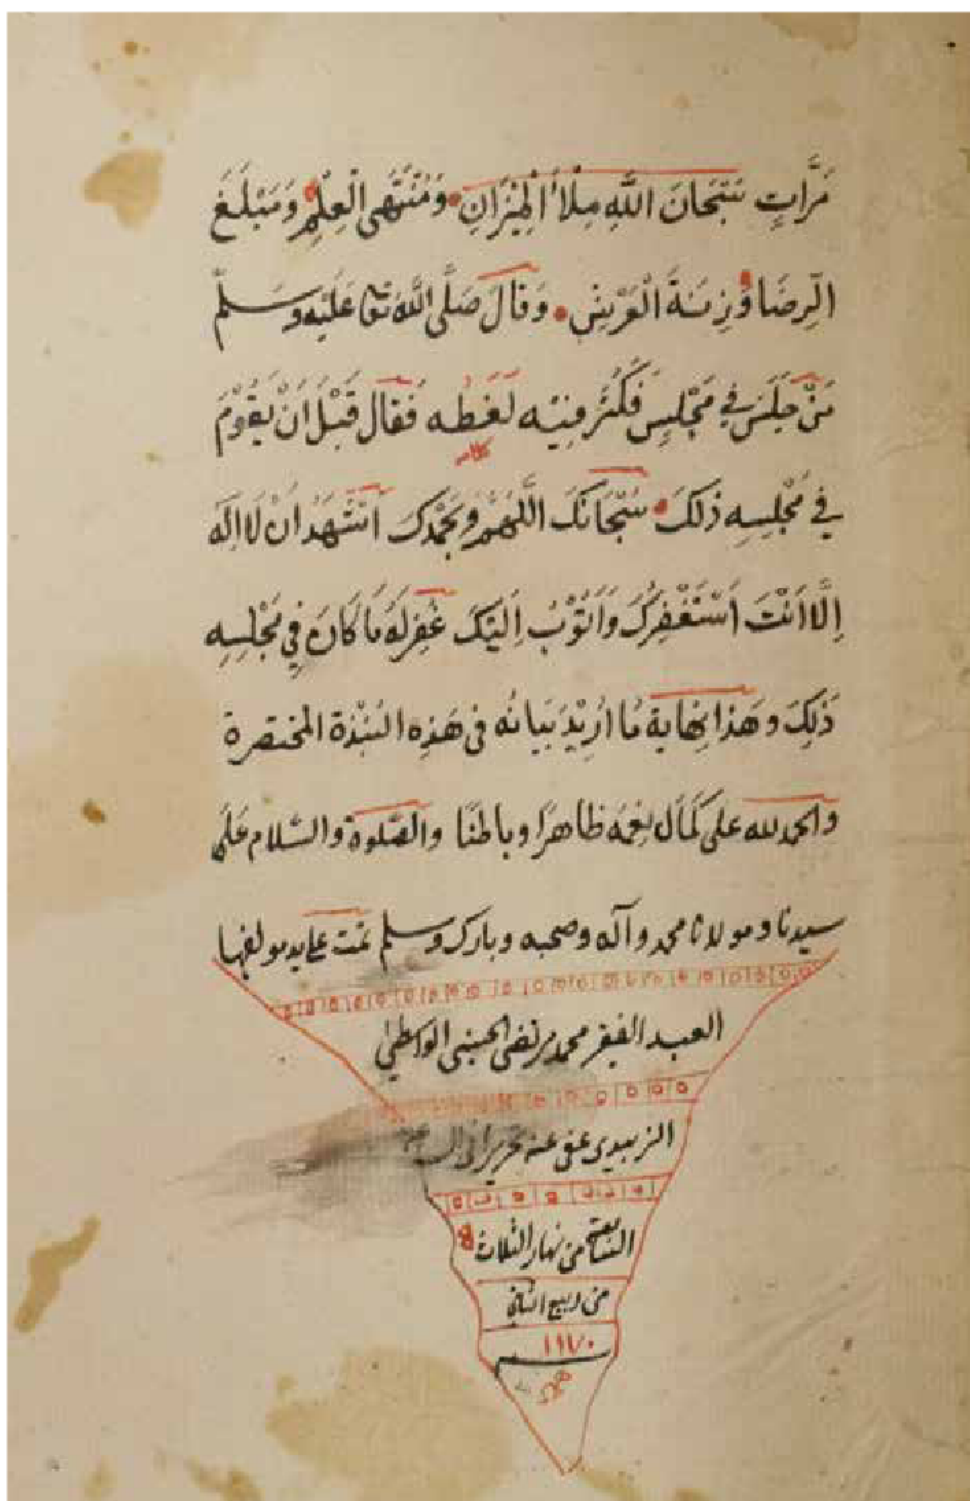 مَرَّاتٍ سُبْحَانَ اللَّهِ مِلْأَ الْمِيْزَانِ وَمُنْتَهَى الْعِلْمِ وَمَبْلَغَ
الرِّضَا وَزِنَةَ الْعَرْشِ وَقَالَ صَلَّى اللَّهُ تعا عَلَيْهِ وَسَلَّمَ
مَنْ جَلَسَ فِي مَجْلِسٍ فَكَثُرَ فِيْهِ لَغَطُه فَقَالَ قَبْلَ اَنْ يَقُوْمَ
كلامه
فِي مَجْلِسِهِ ذَلِكَ سُبْحَانَكَ اللَّهُمَّ وَبِحَمْدِكَ اَشْهَدُ اَنْ لَا اِلَهَ
اِلَّا اَنْتَ اَسْتَغْفِرُكَ وَاَتُوْبُ اِلَيْكَ غُفِرَ لَهُ مَا كَانَ فِي مَجْلِسِهِ
ذَلِكَ وهَذَا نِهَايَة مَا اُرِيْدَ بَيَانُه فى هَذِهِ النُبْذَة المختصرة
والحمد لله على كَمَال نِعَمِه ظاهرًا وباطنًا والصَّلوة والسَّلام عَلَى
سيدنا ومولانا محمد وآله وصحبه وبارك وسلم تمت على يد مولفها
العبد الفقير محمد مرتضى الحسينى الواسطى
الزبيدى عفى عنه تحريرا فى
من نهار الثلاث
من ربيع الثانى